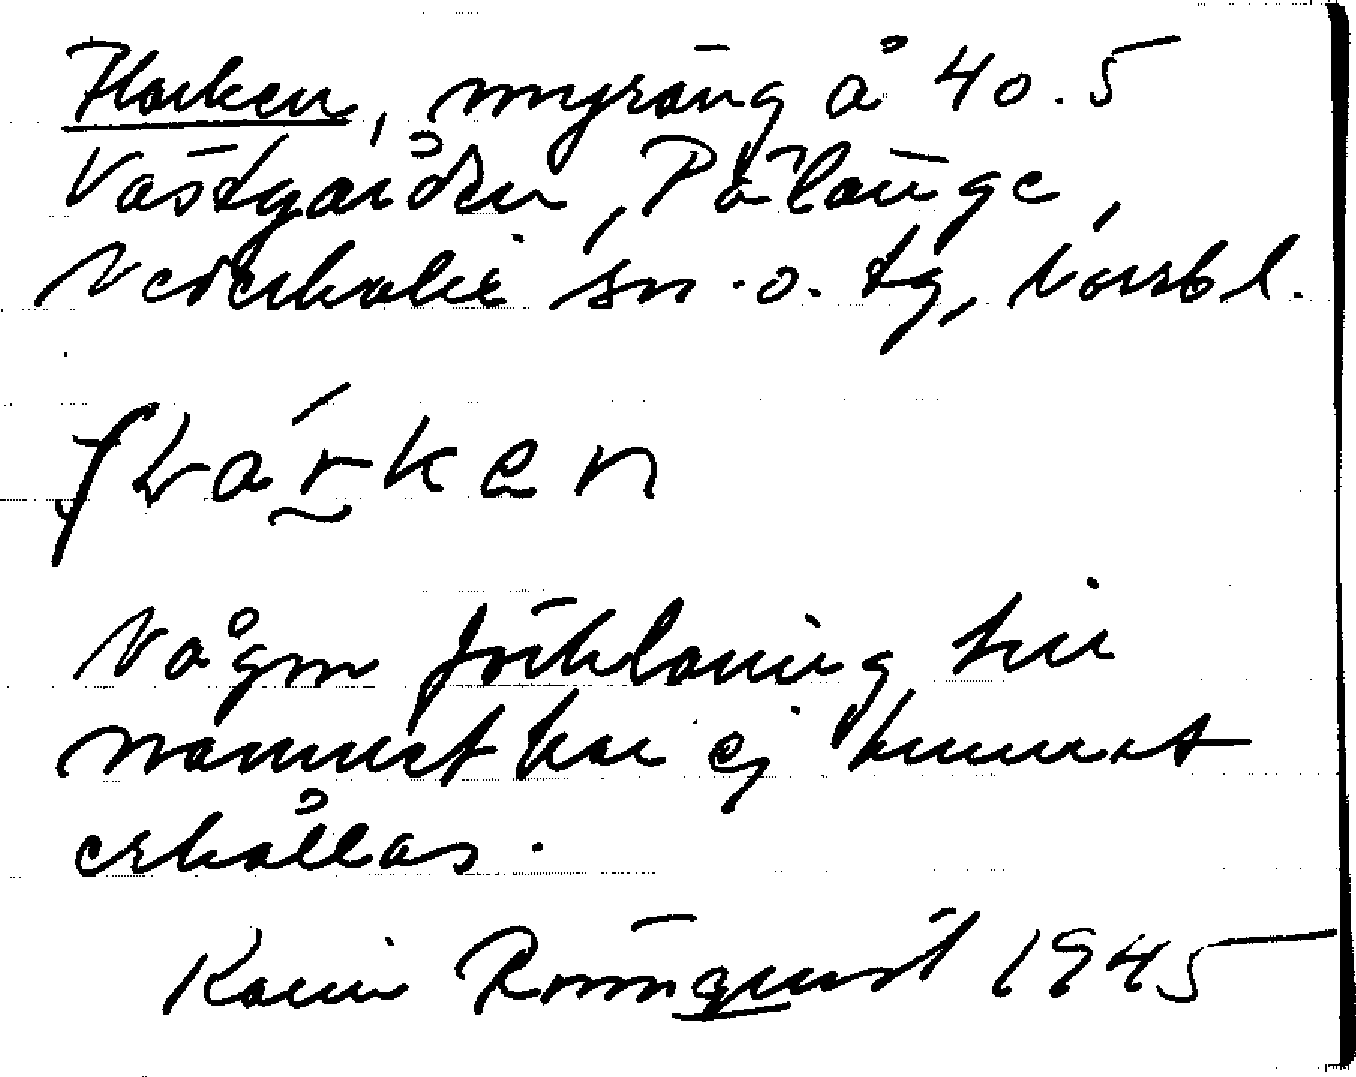 Harken, myräng å 40.5
Västgården, Pålänge,
Nederkalix sn. o. tg, Norrbl.
harken
Någon förklaring till
namnet har ej kunnat
erhållas.
Karin Rönnquist 1945